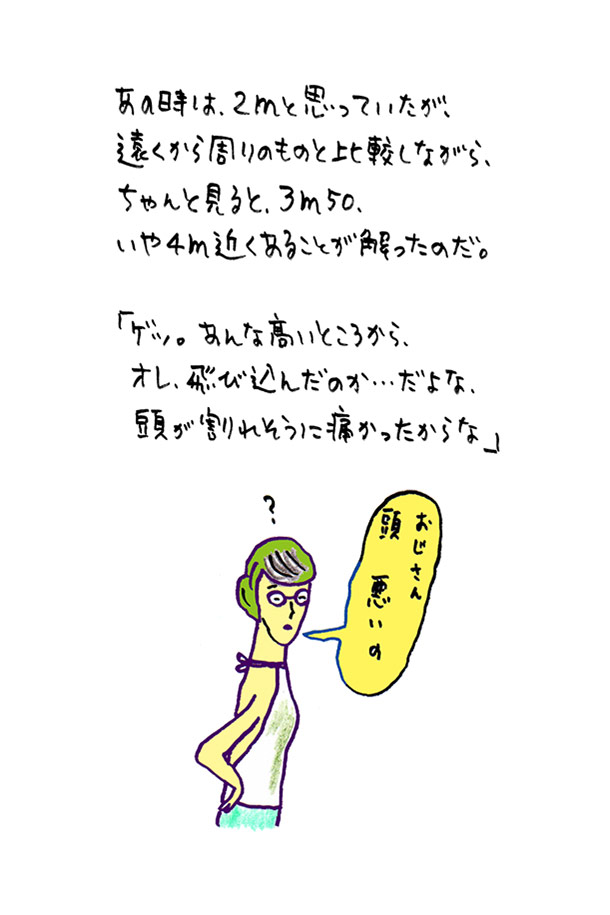 あの時は、2mと思っていたが、
遠くから周りのものと比較しながら、
ちゃんと見ると、3m50、
いや4m近くあることが解ったのだ。
「ゲッ。あんな高いところから、
オレ、飛び込んだのか…だよな、
頭が割れそうに痛かったからな」
?
おじさん
頭 悪いの